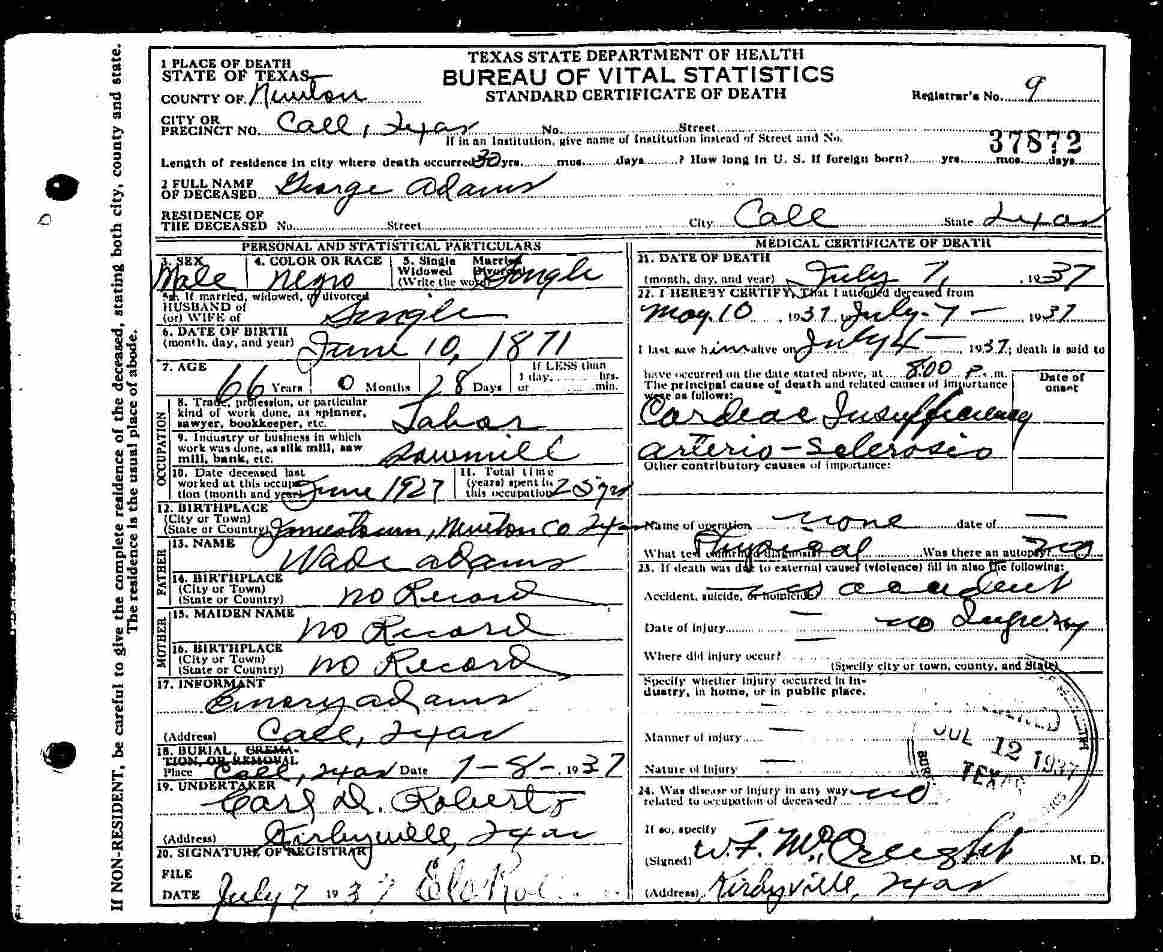 TEXAS STATE DEPARTMENT OF HEALTH
BUREAU OF VITAL STATISTICS
STANDARD CERTIFICATE OF DEATH
1 PLACE OF DEATH
STATE OF TEXAS
COUNTY OF Newton
Registrar's No. 9
CITY OR
PRECINCT NO. Call, Texas No. Street
If in an Institution, give name of Institution instead of Street and No.
37872
Length of residence in city where death occurred 30 yrs. mos. days ? How long in U. S. if foreign born? yrs. mos. days
2 FULL NAME
OF DECEASED George Adams
RESIDENCE OF
THE DECEASED No. Street City Call State Texas
PERSONAL AND STATISTICAL PARTICULARS
3. SEX
Male
4. COLOR OR RACE
Negro
5. Single Married
Widowed Divorced
(Write the word) Single
5a. If married, widowed, or divorced
HUSBAND of
(or) WIFE of Single
6. DATE OF BIRTH
(month, day, and year) June 10, 1871
7. AGE
66 Years 0 Months 28 Days
If LESS than
1 day, hrs.
or min.
OCCUPATION
8. Trade, profession, or particular
kind of work done, as spinner,
sawyer, bookkeeper, etc. Labor
9. Industry or business in which
work was done, as silk mill, saw
mill, bank, etc. Sawmill
10. Date deceased last
worked at this occupa-
tion (month and year) June 1927
11. Total time
(years) spent in
this occupation 25 yrs
12. BIRTHPLACE
(City or Town)
(State or Country) Jamestown, Newton Co Texas
FATHER
13. NAME
Wade Adams
14. BIRTHPLACE
(City or Town)
(State or Country) no Record
MOTHER
15. MAIDEN NAME
no Record
16. BIRTHPLACE
(City or Town)
(State or Country) no Record
17. INFORMANT
Emery Adams
(Address) Call, Texas
18. BURIAL, CREMA-
TION, OR REMOVAL
Place Call, Texas Date 7-8- 1937
19. UNDERTAKER
Carl D. Roberts
(Address) Kirbyville, Texas
20. SIGNATURE OF REGISTRAR
FILE
DATE July 7 1937
MEDICAL CERTIFICATE OF DEATH
21. DATE OF DEATH
(month, day, and year) July 7, 1937
22. I HEREBY CERTIFY, That I attended deceased from
May 10 1937 July-7- 1937
I last saw him alive on July 4- 1937; death is said to
have occurred on the date stated above, at 8:00 P. m.
The principal cause of death and related causes of importance
were as follows:
Date of
onset
Cardeac Insufficiency
arterio-Sclerosis
Other contributory causes of importance:
Name of operation none date of —
What test confirmed diagnosis? Physical Was there an autopsy? no
23. If death was due to external causes (violence) fill in also the following:
Accident, suicide, or homicide? no accident
Date of injury no Injury
Where did injury occur?
(Specify city or town, county, and State)
Specify whether injury occurred in in-
dustry, in home, or in public place.
Manner of injury —
Nature of Injury —
JUL 12 1937
TEXAS
24. Was disease or injury in any way
related to occupation of deceased? no
If so, specify
(Signed) W. F. McCreight M. D.
(Address) Kirbyville, Texas
If NON-RESIDENT, be careful to give the complete residence of the deceased, stating both city, county and state.
The residence is the usual place of abode.